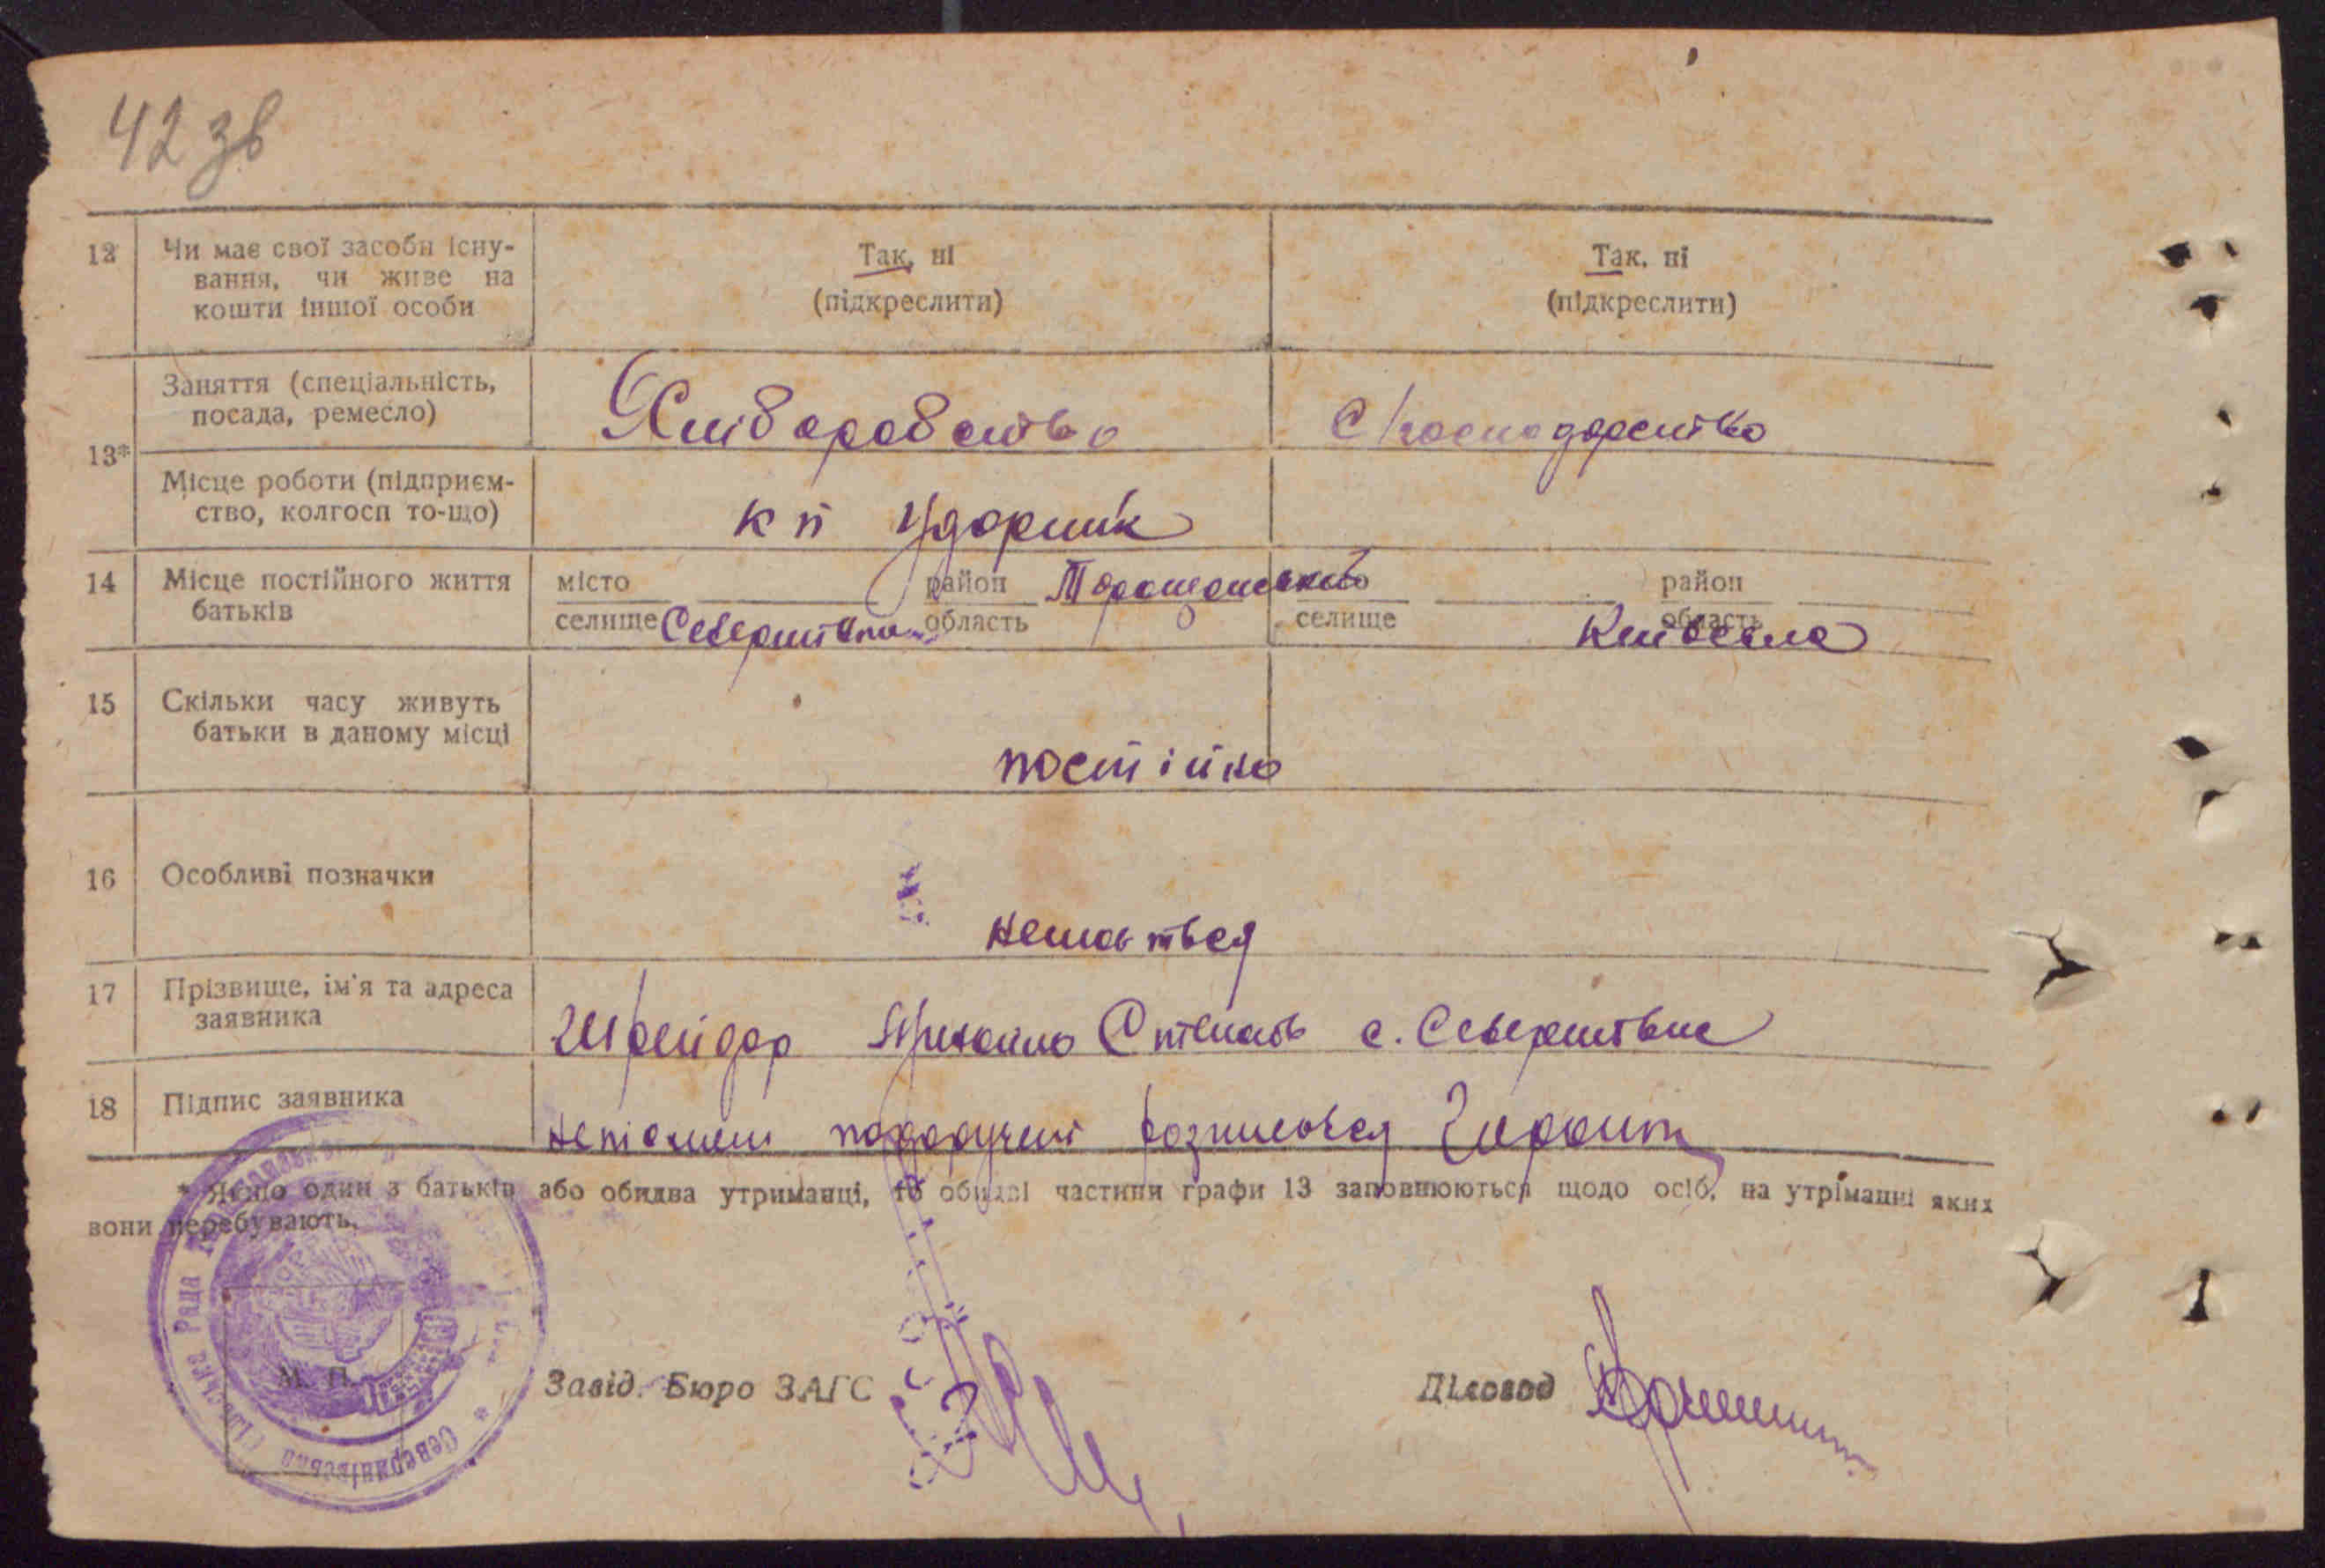 42 зв
12 Чи має свої засоби існу-
вання, чи живе на
кошти іншої особи
Так, ні
(підкреслити)
Так, ні
(підкреслити)
13*
Заняття (спеціальність,
посада, ремесло)
Хліборобство
С господарство
Місце роботи (підприєм-
ство, колгосп то-що)
кп Ударник
14 Місце постійного життя
батьків
місто район
селище Северинівка область
район
селище область
Київська
15 Скільки часу живуть
батьки в даному місці
постійно
16 Особливі позначки
17 Прізвище, ім'я та адреса
заявника
с. Северинівка
18 Підпис заявника
* Якщо один з батьків або обидва утриманці, то обидві частини графи 13 заповнюються щодо осіб, на утріманні яких
вони перебувають.
Северинівська Сільська Рада
М. П.
Завід. Бюро ЗАГС
Діловод